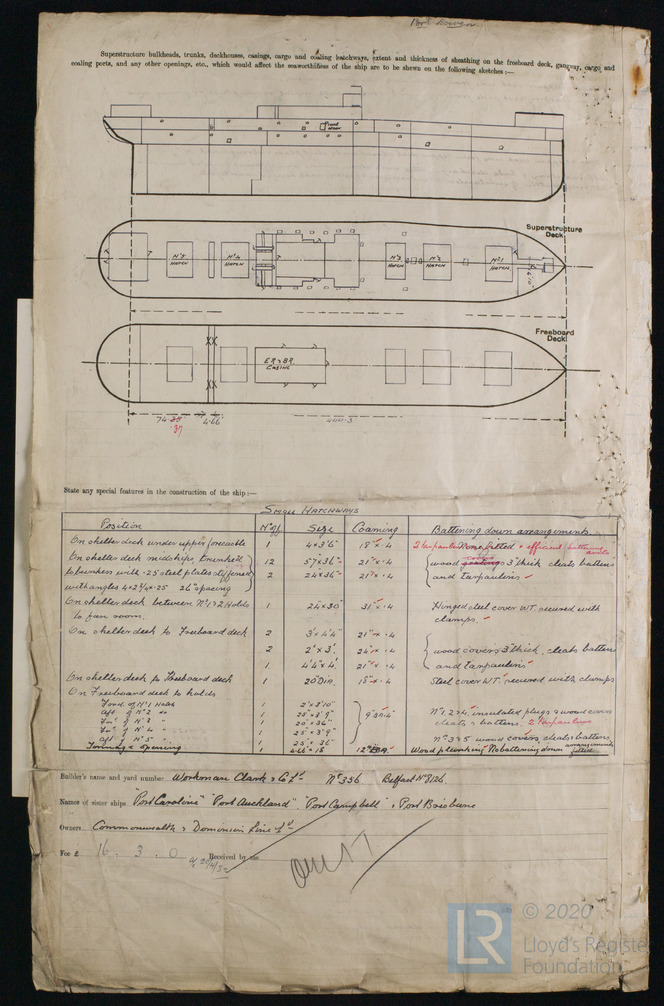 Port Bowen
Superstructure bulkheads, trunks, deckhouses, casings, cargo and coaling hatchways, extent and thickness of sheathing on the freeboard deck, gangway, cargo and
coaling ports, and any other openings, etc., which would affect the seaworthiness of the ship are to be shewn on the following sketches :—
Superstructure
Deck
Nº5
HATCH
Nº4
HATCH
Nº3
HATCH
Nº2
HATCH
Nº1
HATCH
Freeboard
Deck
E.R & B.R
CASING
74.28
.37
4.66
State any special features in the construction of the ship :—
SMALL HATCHWAYS
Position Nº off Size Coaming Battening down arrangements
On shelter deck under upper forecastle 1 4'×3'6" 18"×.4 2 Tarpaulins None fitted + efficient battening
On shelter deck midships, trunked 12 57"×36" 21"×.4 wood covers 3" thick cleats battens
to bunkers with .25 steel plates stiffened 2 24"×36" 21"×.4 and tarpaulins
with angles 4×2¾×.25 26" spacing
On shelter deck between Nº1&2 Holds 1 24×30" 31"×.4 Hinged steel cover W.T. secured with
to fan room. clamps.
On shelter deck to Freeboard deck 2 3'×4'4" 21"×.4
2 2'×3' 24"×.4 wood covers 3" thick, cleats battens
1 4'4"×4' 21"×.4 and tarpaulins
On shelter deck to Freeboard deck 1 20"DIA. 18"×.4 Steel cover W.T. secured with clamps
On Freeboard deck to holds
Ford. of Nº1 Hatch 1 2'×3'10"
Aft of Nº2 do 1 25"×3'9" Nº1,2&4, insulated plugs & wood covers
For'd of Nº3 " 1 20"×36" 9" cleats & battens. 2 Tarpaulins
For'd of Nº4 " 1 25"×3'9"
Aft of Nº5 " 1 25"×36" Nº3&5 wood covers, cleats & battens
Tonnage opening 1 12" Wood planking No battening down arrangements fitted
Builder's name and yard number Workman Clark & Co Ld Nº 356 Belfast Nº 8126.
Names of sister ships "Port Caroline" "Port Auckland", "Port Campbell" & Port Brisbane
Owners Commonwealth & Dominion Line Ld
Fee £ 16 . 3 . 0 Received by me
LR
© 2020
Lloyd's Register
Foundation